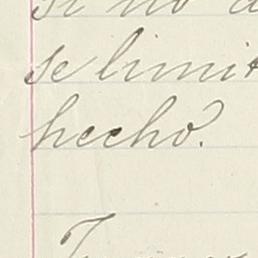 si no
se limit
hecho.